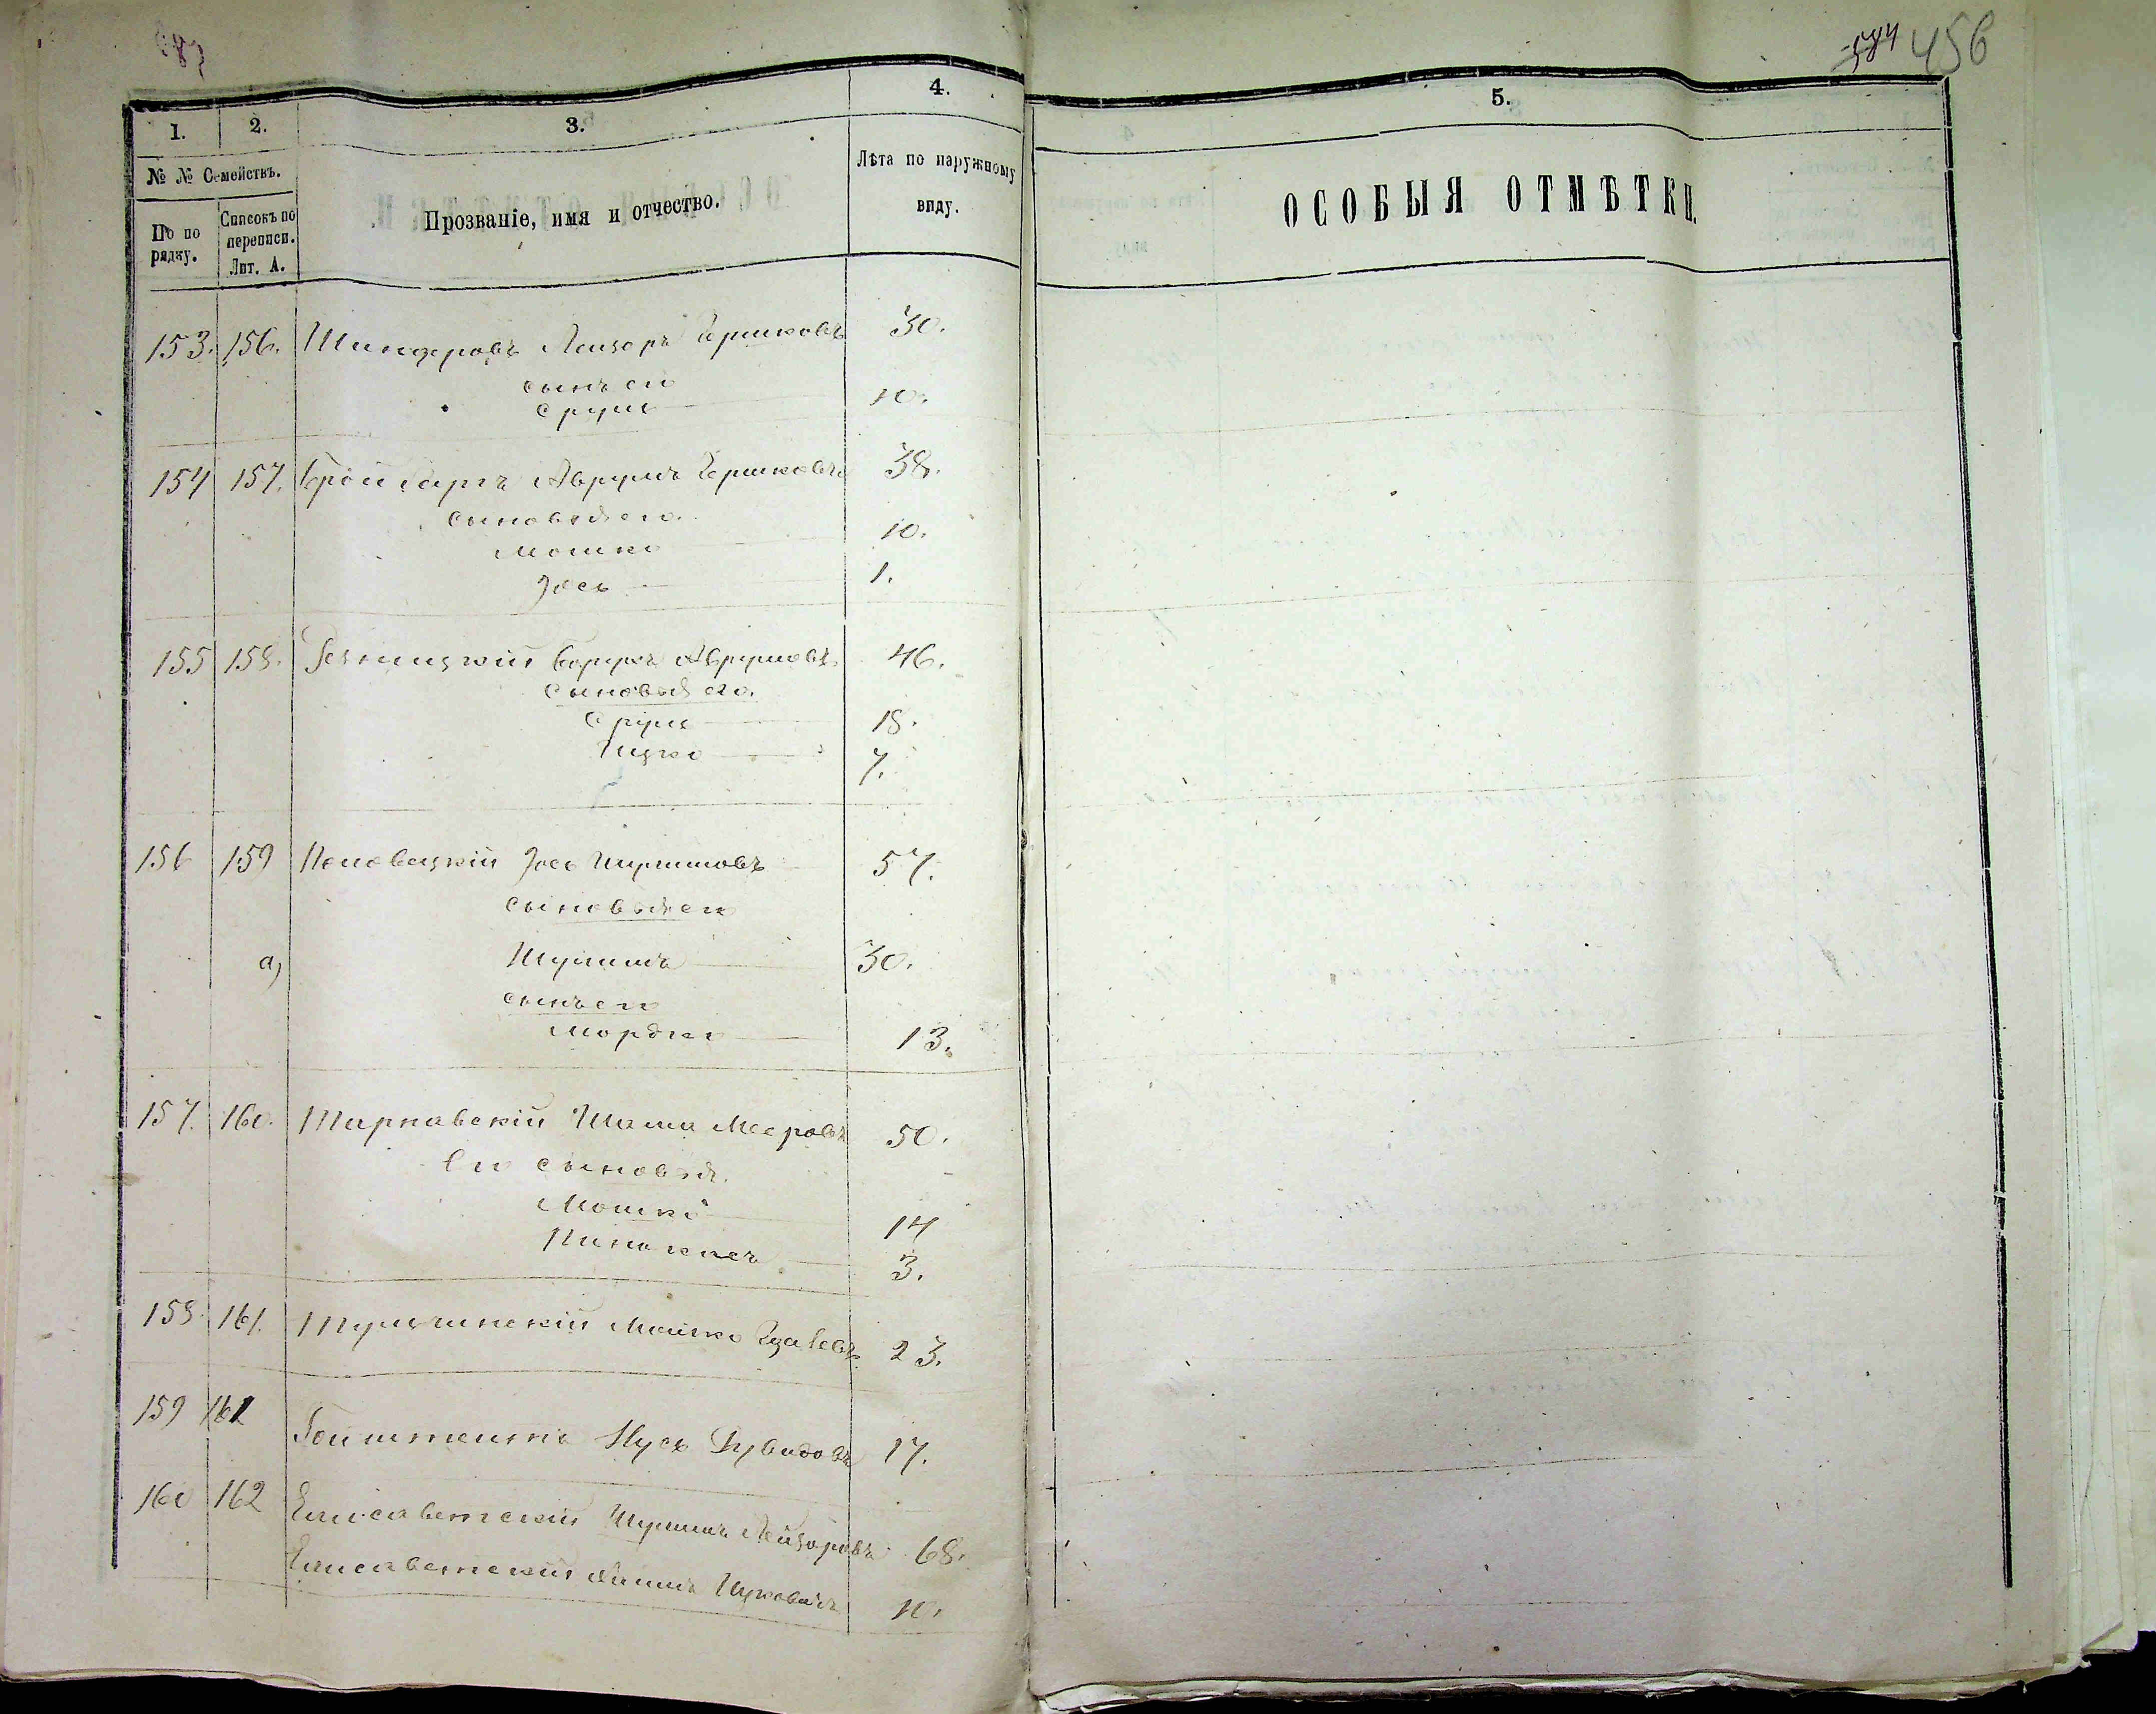 584 456
1. 2. 3. 4. 5.
№ № Семействъ.
По по рядку.
Списокъ по переписи. Лит. А.
Прозваніе, имя и отчество.
Лѣта по наружному виду.
ОСОБЫЯ ОТМѢТКИ.
153. 156. Шиндеровъ Лейзоръ Гершковъ 30.
сынъ его
Сруль 10.
154 157. Аврумъ Гершковъ 38.
сыновья его.
Мошко 10.
Іось 1.
155 158. Резницкій Борухъ Аврумовъ 46.
сыновья его.
Сруль 18.
Ицко 7.
156 159 Іось Шулимовъ 57.
сыновья его
а) Шулимъ 30.
сынъ его
Мордко 13.
157. 160. Тарнавскій Шама Мееровъ 50.
Его сыновья.
Мошко 14
Пинхасъ 3.
158. 161. Тульчинскій Мошко 23.
159 161 Гойштейнъ Нусь Дувидовъ 17.
160 162 Елисаветскій Шулимъ Лейзоровъ 68.
Елисаветскій Ицковичъ 10.